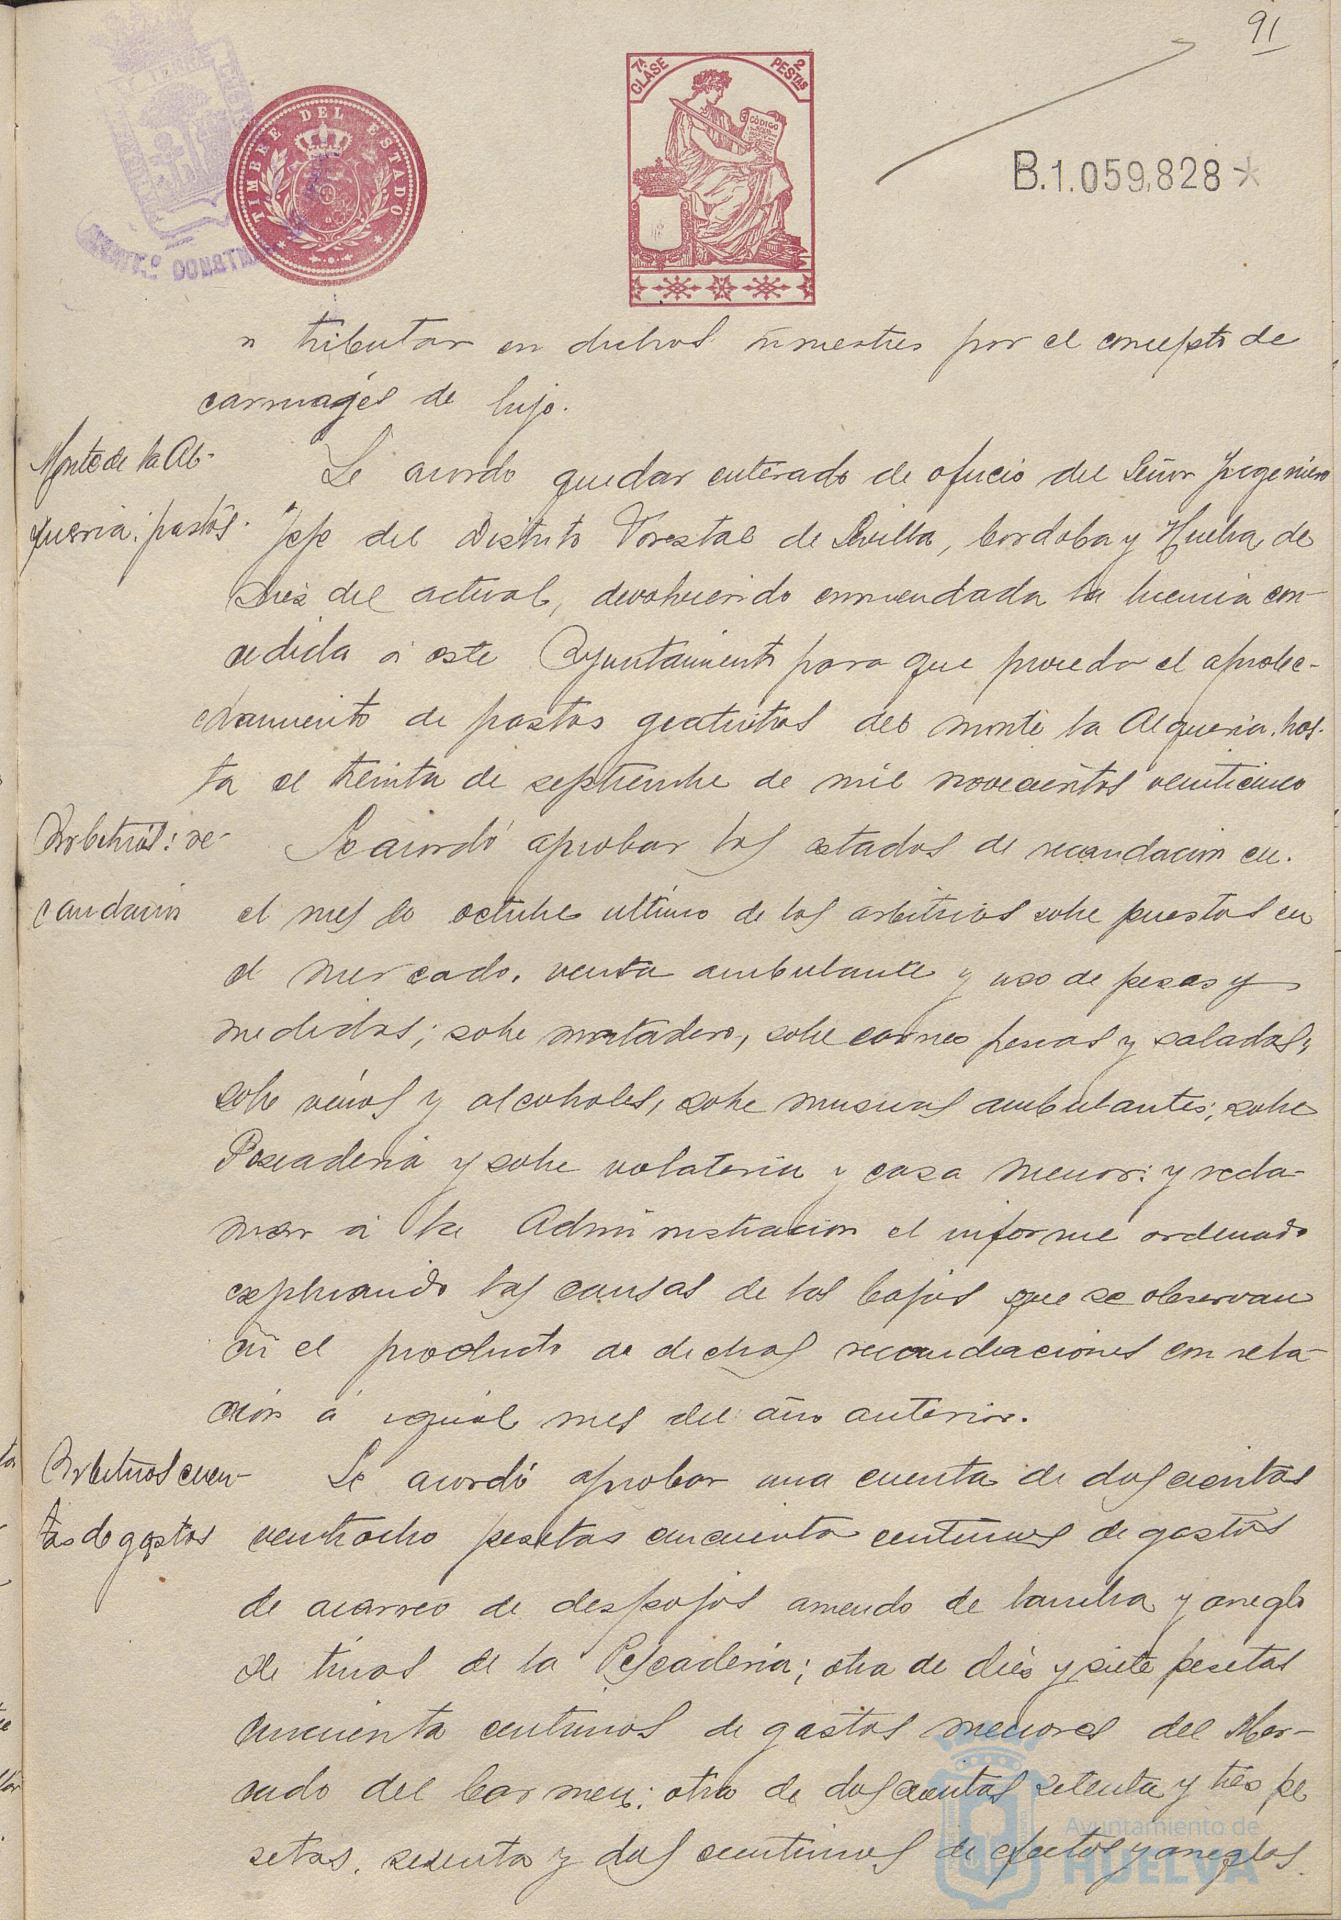 91
7ª CLASE
2 PESTAS
CÓDIGO
TIMBRE DEL ESTADO
B.1.059,828*
a tributar en dichos trimestres por el concepto de
carruages de lujo.
Monte de la Al-
queria: pastos.
Se acordo quedar enterado de oficio del Señor Yngeniero
Jefe del Distrito Forestal de Sevilla, Cordoba y Huelva, de
diez del actual, devolviendo enmendada la licencia con-
cedida á este Ayuntamiento para que proceda el aprove-
chamiento de pastos gratuitos del monte la Alqueria, has-
ta el treinta de septiembre de mil novecientos veinticinco
Arbitrios: re-
caudación
Se acordó aprobar los estados de recaudacion en
el mes de octubre ultimo de los arbitrios sobre puestos en
el mercado, venta ambulante y uso de pesas y
medidas; sobre matadero, sobre carnes frescas y saladas,
sobre vinos y alcoholes, sobre musicas ambulantes; sobre
Pescaderia y sobre volateria y caza menor: y recla-
mar á la Administracion el informe ordenado
explicando las causas de las bajas que se observan
en el producto de dichas recaudaciones con rela-
ción á igual mes del año anterior.
Arbitrios cuen-
tas de gastos
Se acordó aprobar una cuenta de doscientas
veintiocho pesetas cincuenta centimos de gastos
de acarreo de despojos arriendo de lancha y arreglo
de tinas de la Pescaderia; otra de diez y siete pesetas
cincuenta centimos de gastos menores del Mer-
cado del Carmen; otra de doscientas setenta y tres pe
setas, sesenta y dos centimos de efectos y arreglos
Ayuntamiento de
HUELVA